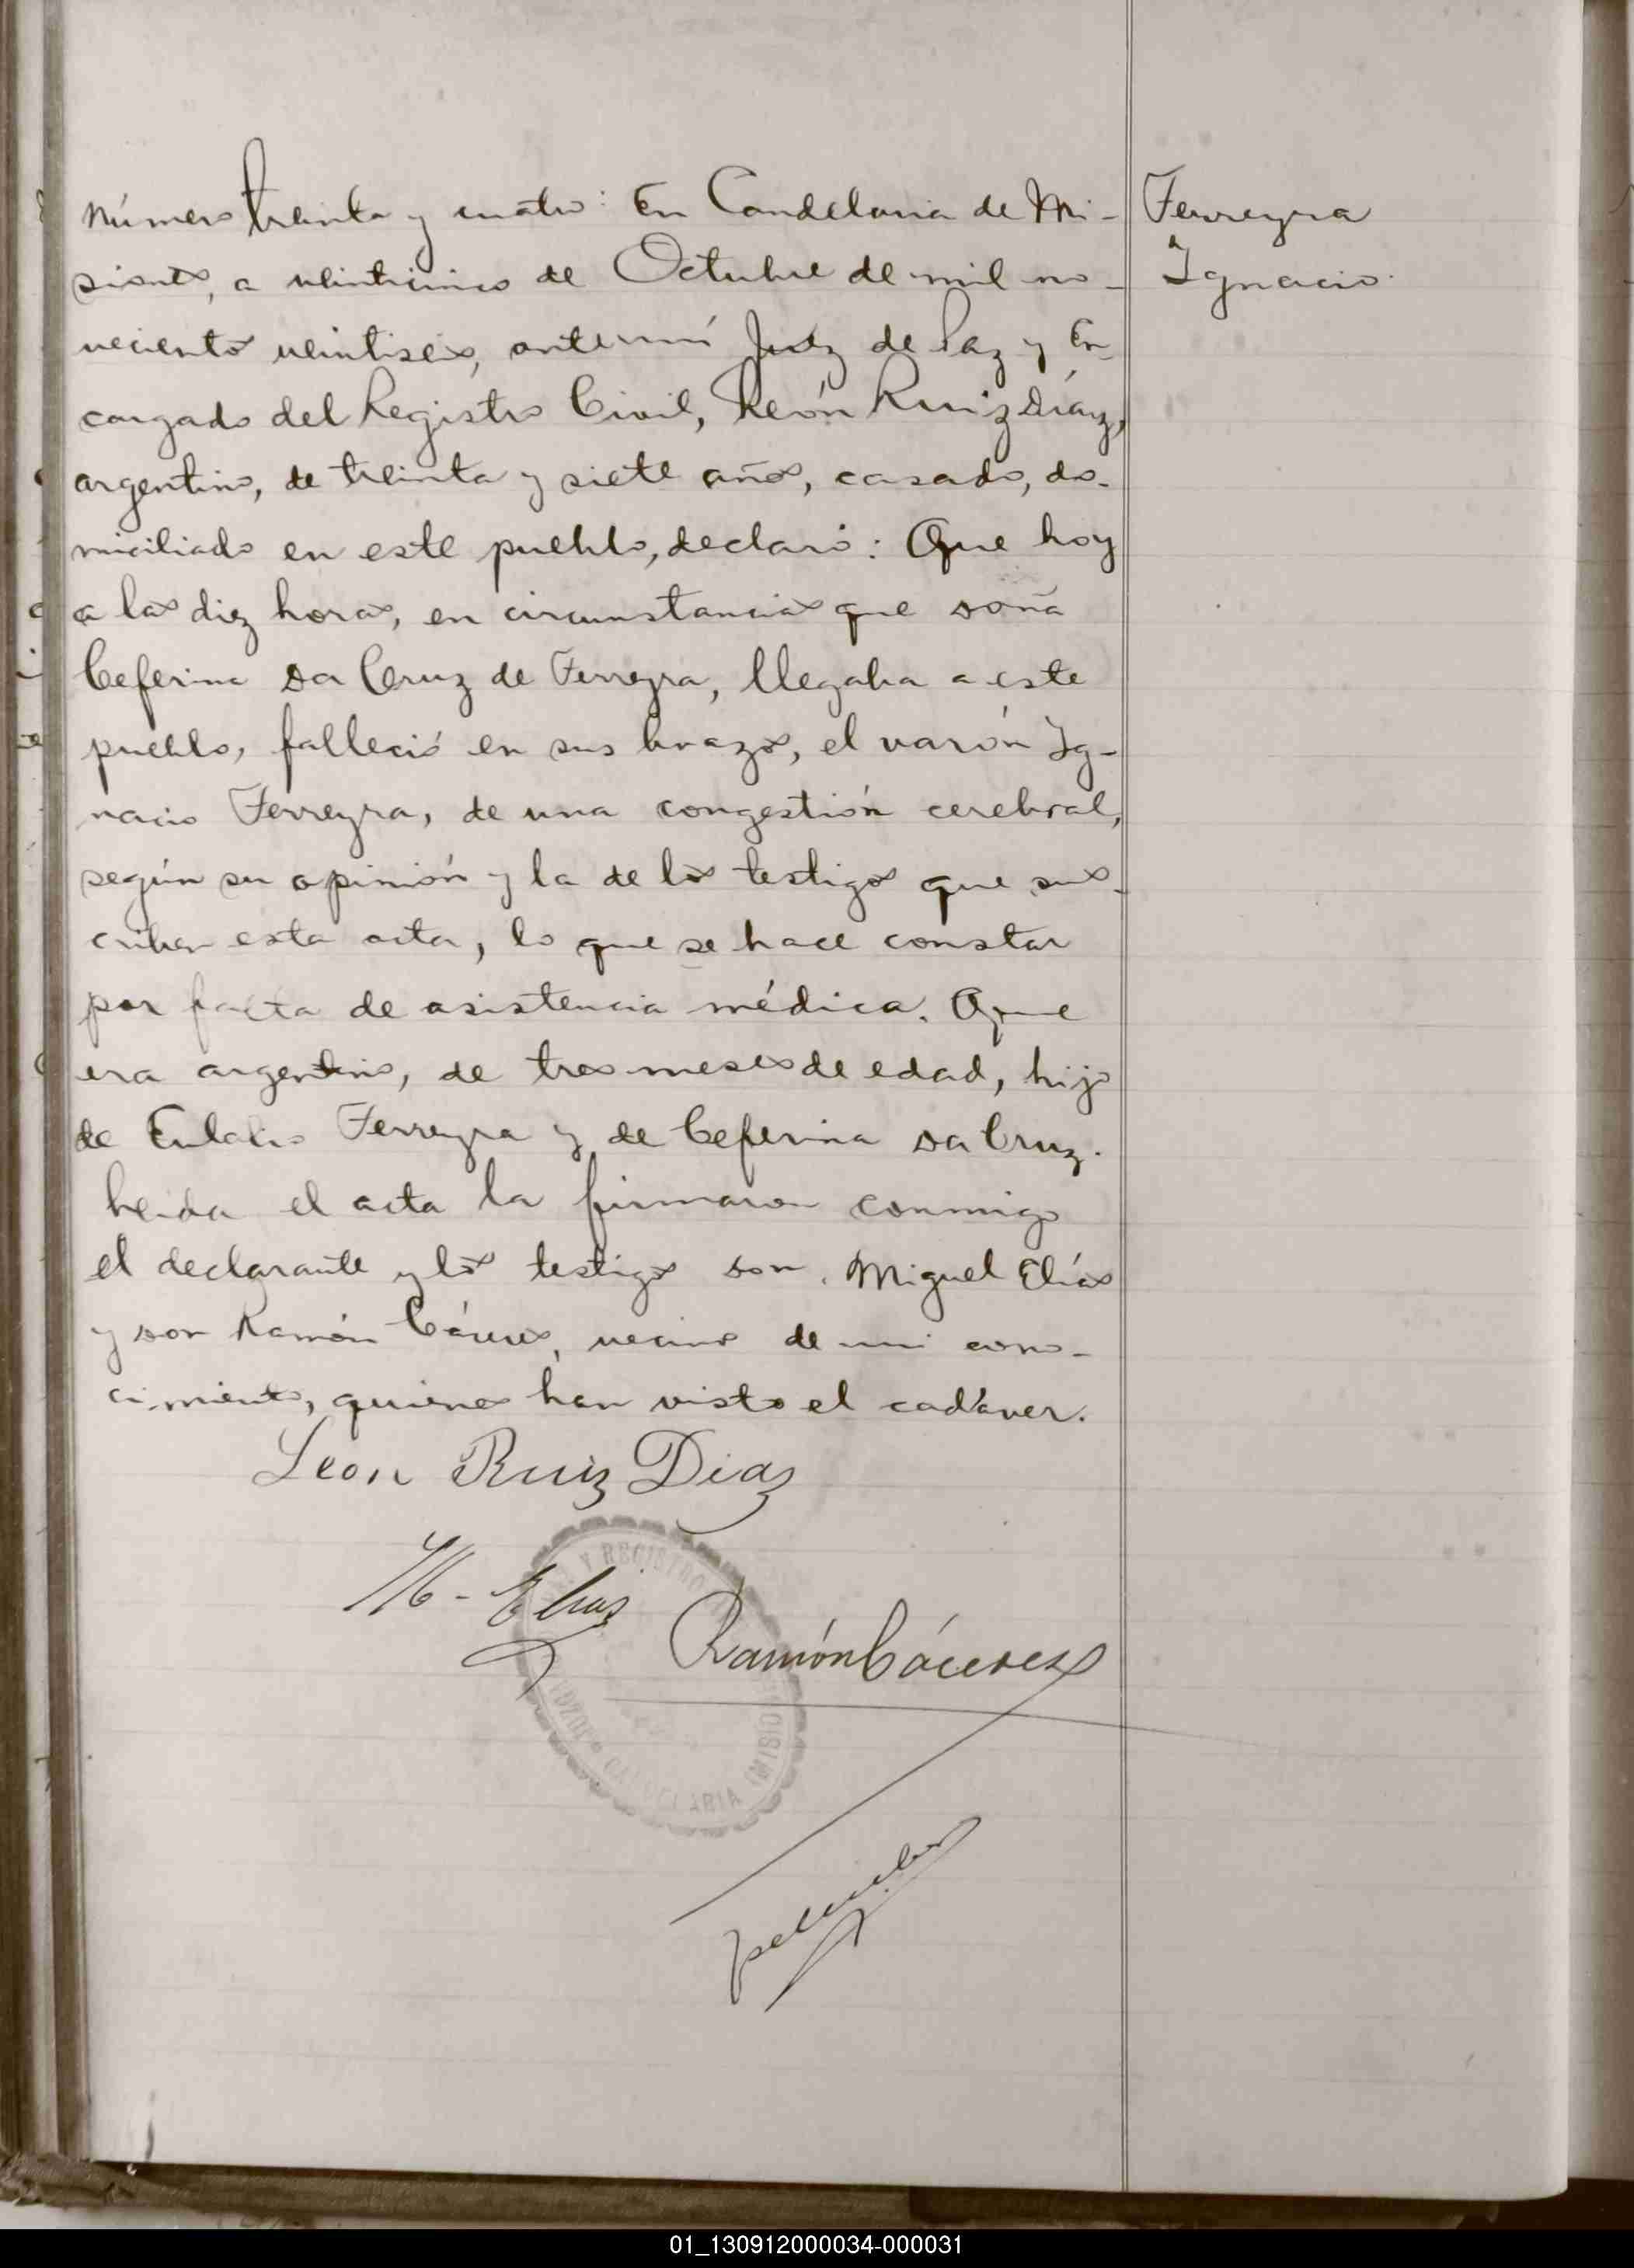 Número treinta y cuatro: En Candelaria de Mi-
siones, a veinticinco de Octubre de mil no-
vecientos veintiseis, ante mí Juez de Paz y En-
cargado del Registro Civil, León Ruiz Díaz,
argentino, de treinta y siete años, casado, do-
miciliado en este pueblo, declaró: Que hoy
a las diez horas, en circunstancias que doña
Ceferina da Cruz de Ferreyra, llegaba a este
pueblo, falleció en sus brazos, el varón Ig-
nacio Ferreyra, de una congestión cerebral,
según su opinión y la de los testigos que sus-
criben esta acta, lo que se hace constar
por falta de asistencia médica. Que
era argentino, de tres meses de edad, hijo
de Eulalio Ferreyra y de Ceferina da Cruz.
Leida el acta la firmaron conmigo
el declarante y los testigos don Miguel Elías
y don Ramón Cáceres, vecinos de mi cono-
cimiento, quienes han visto el cadáver.
Ferreyra
Ignacio.
Leon Ruiz Diaz
M - Elias
Ramón Cáceres
Y REGISTRO
CANDELARIA (MISIO
01_130912000034-000031